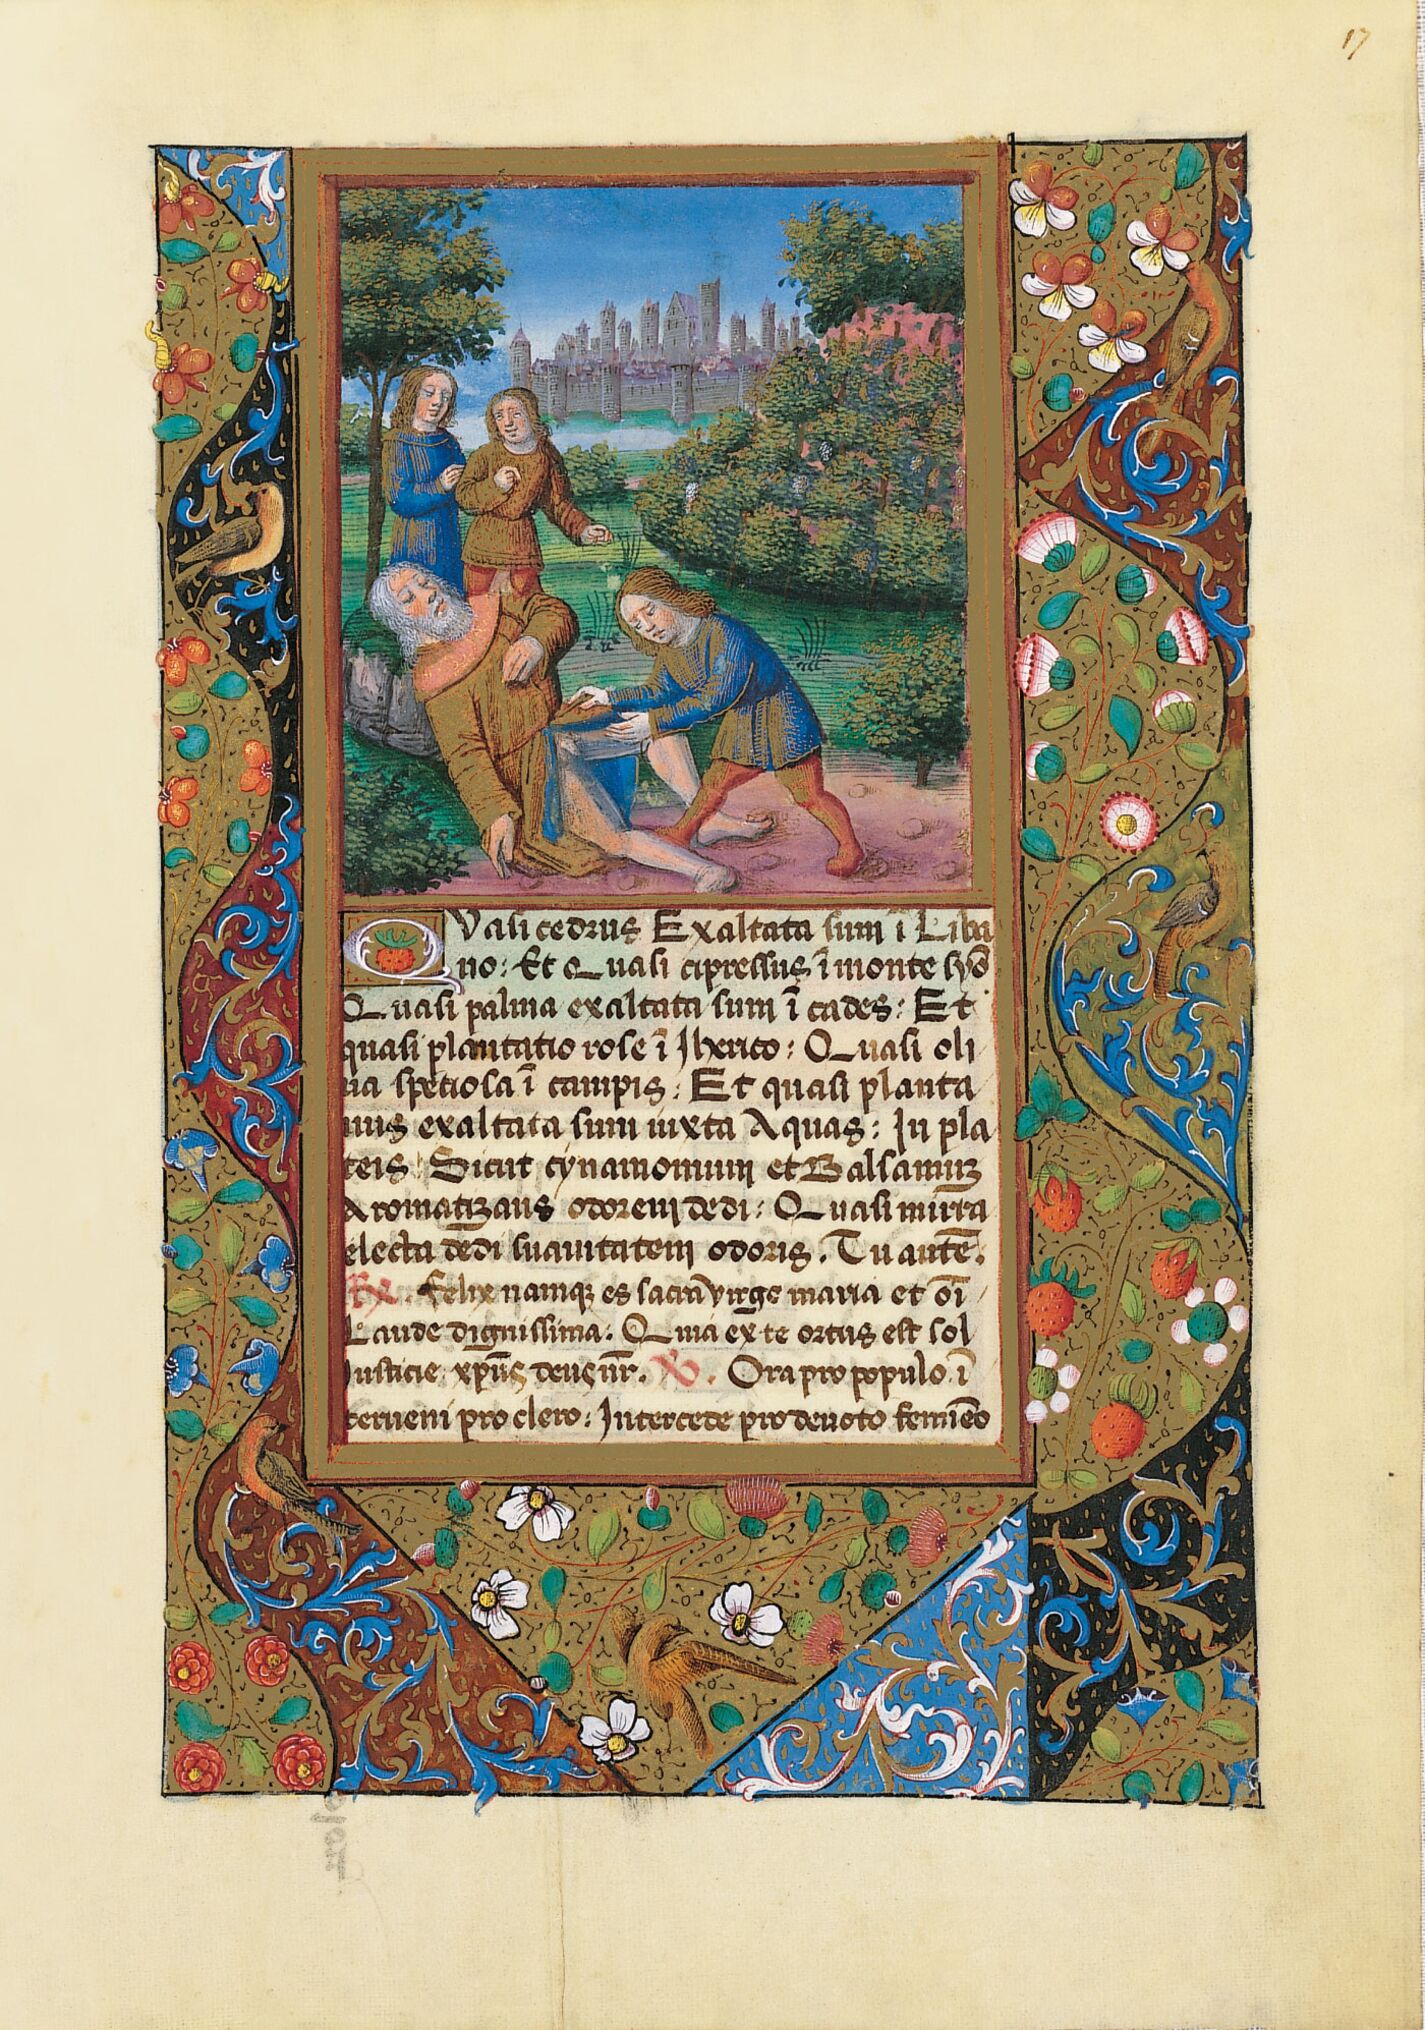 17
Quasi cedrus Exaltata sum ī Liba
no: Et Quasi cipressus ī monte syō
Quasi palma exaltata sum ī cades: Et
quasi plantatio rose ī Jherico: Quasi oli
ua speciosa ī campis: Et quasi planta
nus exaltata sum iuxta Aquas: In pla
teis Sicut cynamomum et Balsamuz
Aromatizans odorem dedi: Quasi mirra
electa dedi suauitatem odoris. Tu autē.
Rx. Felix namqz es sacra virgo maria et oī
Laude dignissima: Quia ex te ortus est sol
Justicie xpūs deus nr̄. V. Ora pro populo ī
terueni pro clero: Intercede pro deuoto femīeo